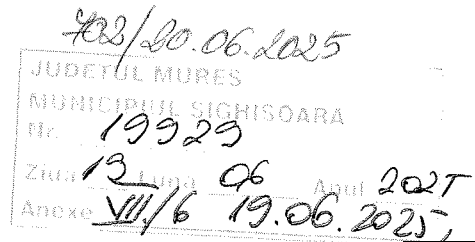 702/20.06.2025
JUDETUL MURES
MUNICIPIUL SIGHISOARA
Nr. 19929
Ziua 13 Luna 06 Anul 2025
Anexe VII./6 19.06.2025,